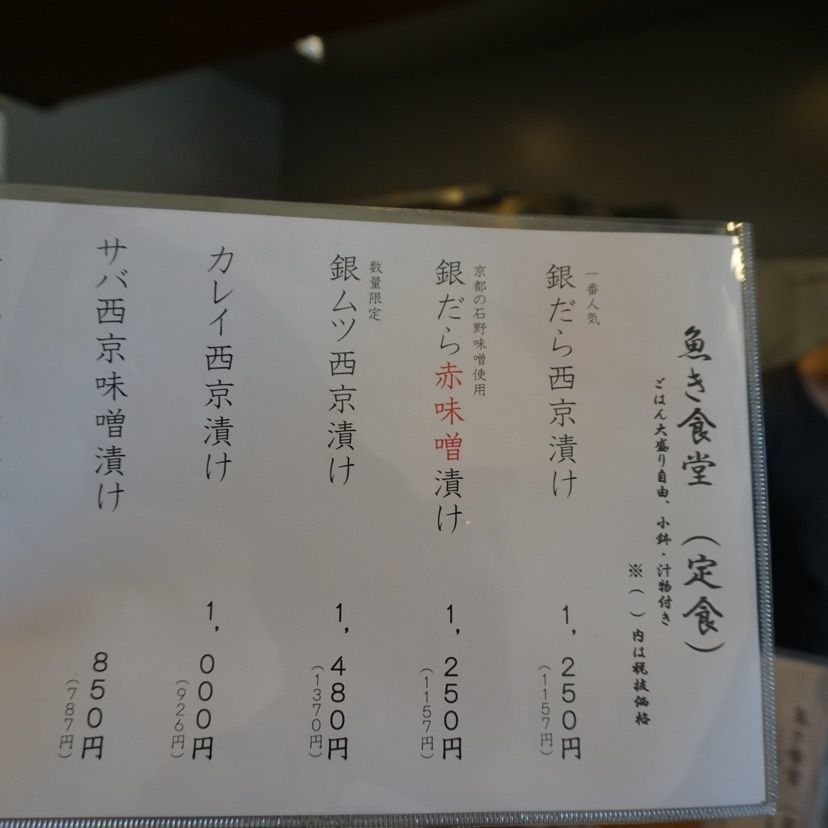 魚き食堂 (定食)
ごはん大盛り自由、小鉢・汁物付き
※( )内は税抜価格
一番人気
銀だら西京漬け 1,250円
(1157円)
京都の石野味噌使用
銀だら赤味噌漬け 1,250円
(1157円)
数量限定
銀ムツ西京漬け 1,480円
(1370円)
カレイ西京漬け 1,000円
(926円)
サバ西京味噌漬け 850円
(787円)